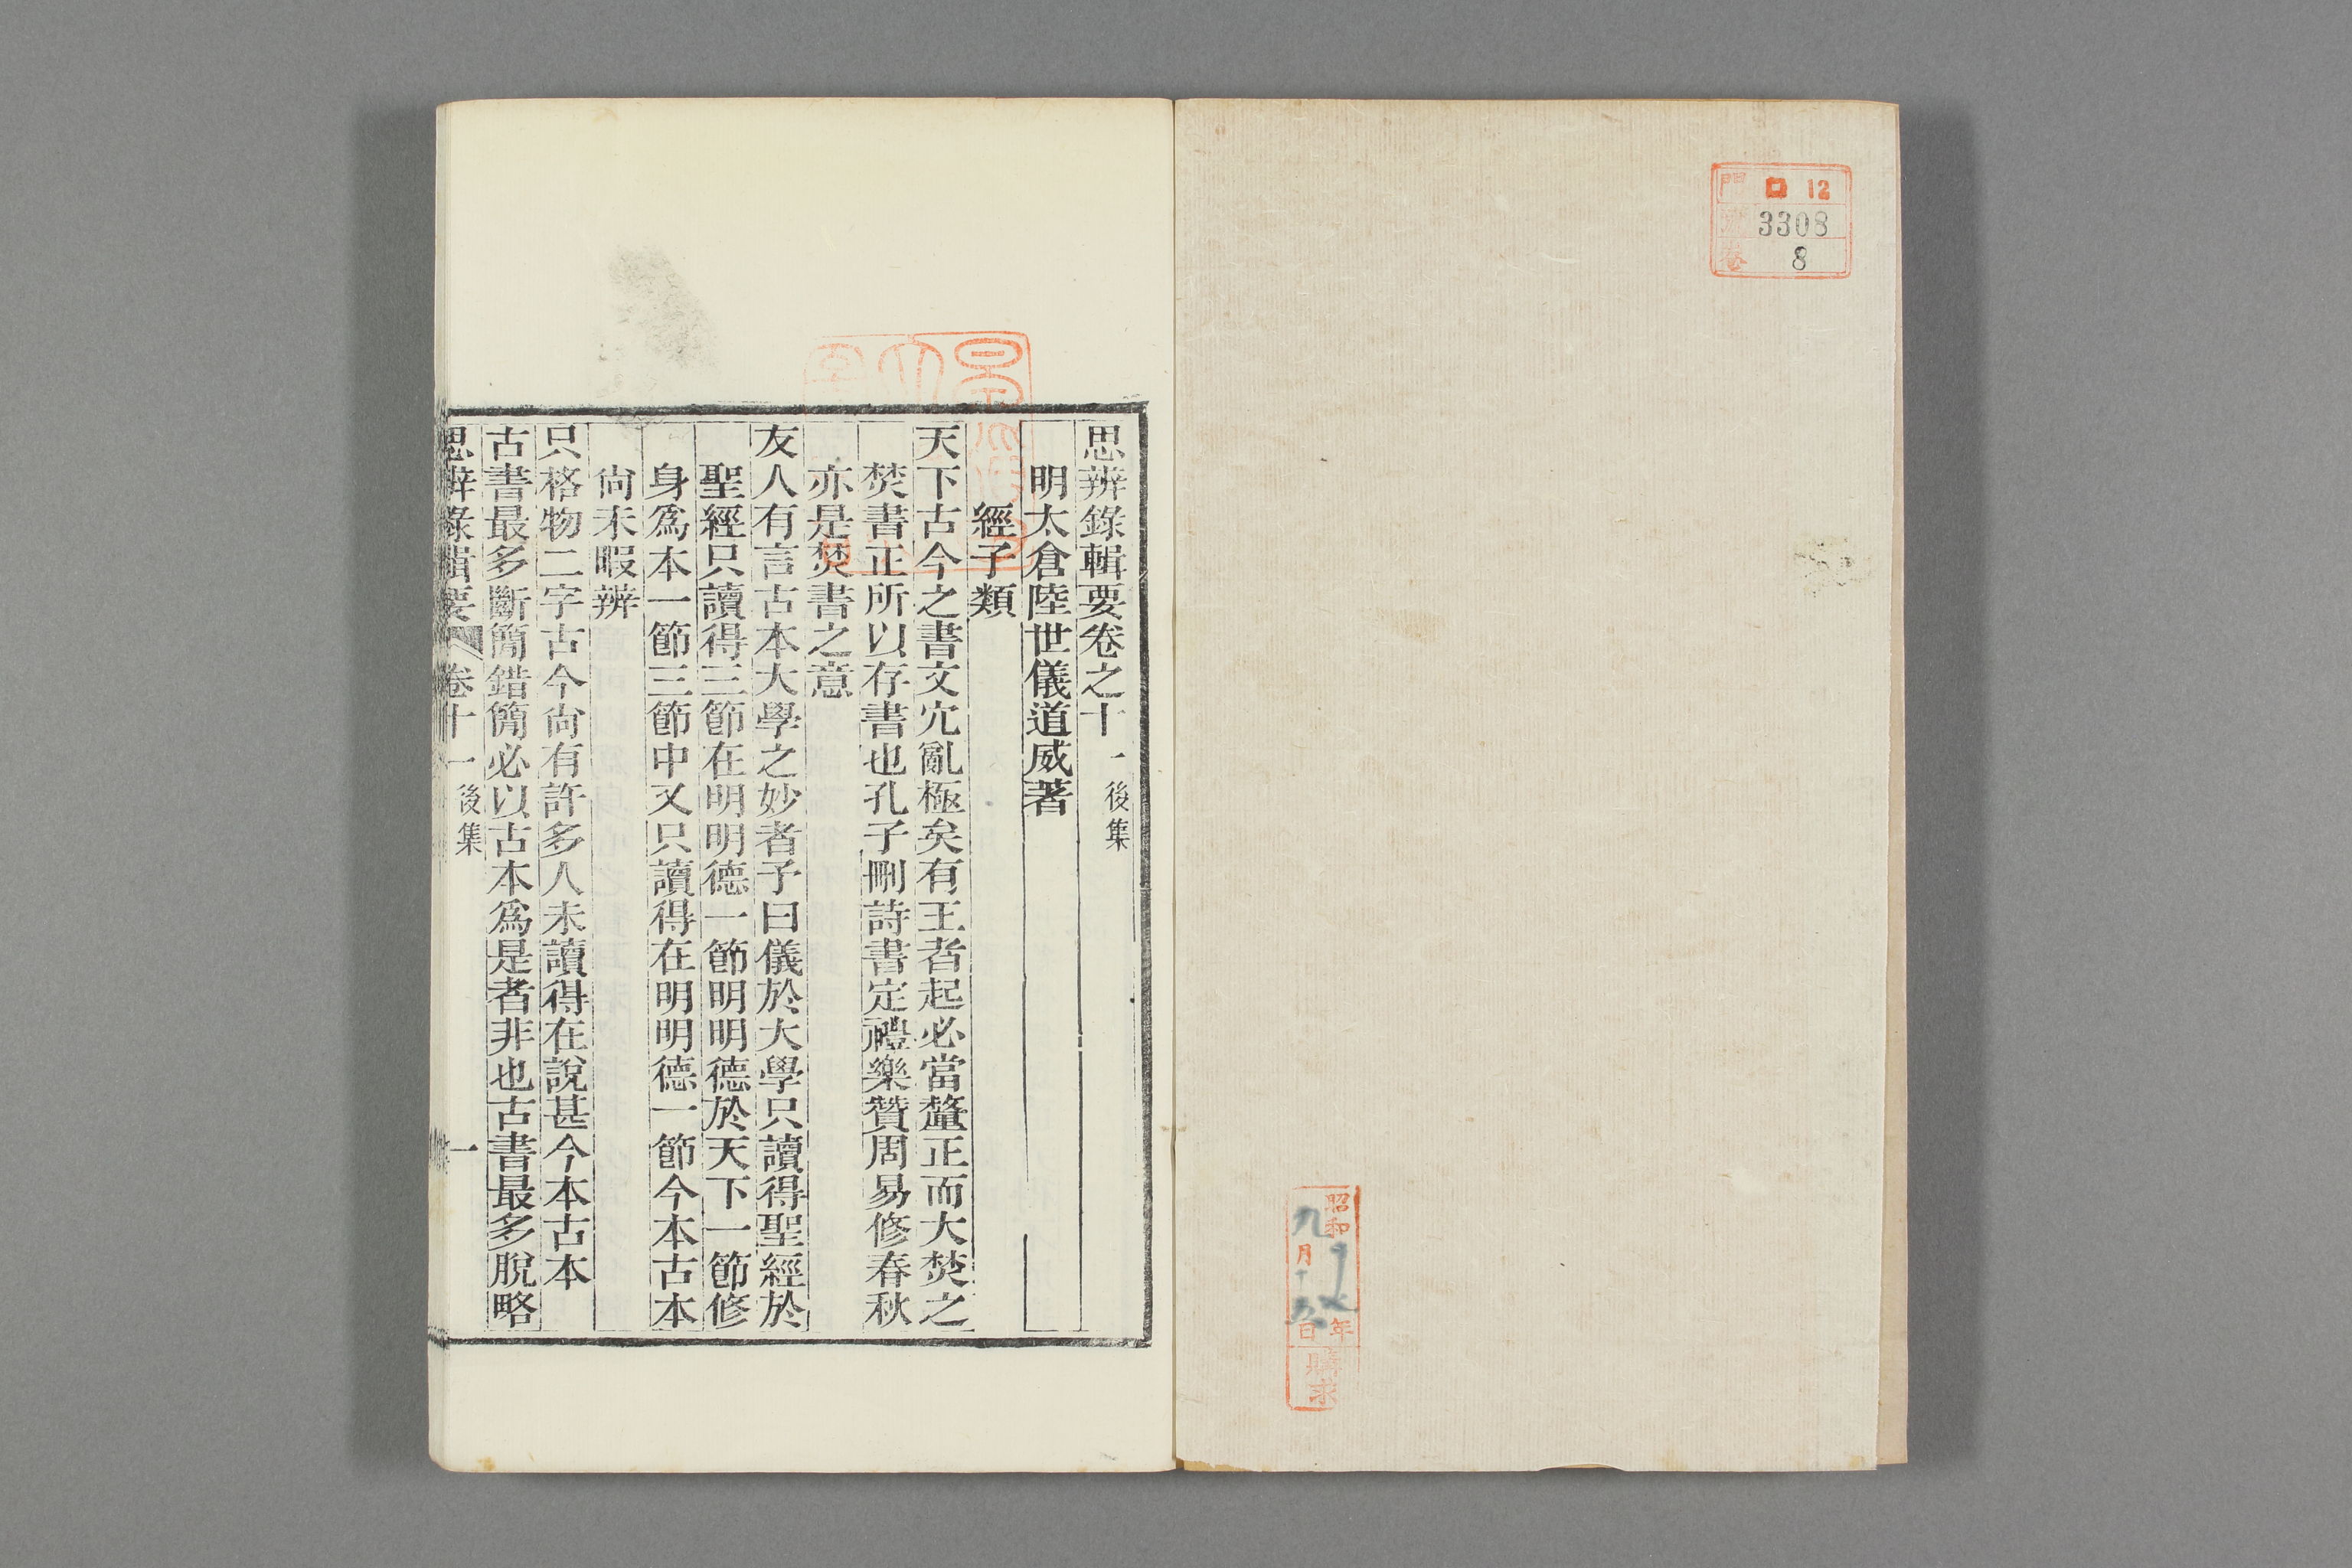 門 ロ 12
號 3308
卷 8
昭和十七年
九月十五日
購求
思辨錄輯要卷之十一後集
明太倉陸世儀道威著
經子類
天下古今之書文冗亂極矣有王者起必當釐正而大焚之
焚書正所以存書也孔子刪詩書定禮樂贊周易修春秋
亦是焚書之意
友人有言古本大學之妙者予曰儀於大學只讀得聖經於
聖經只讀得三節在明明德一節明明德於天下一節修
身爲本一節三節中又只讀得在明明德一節今本古本
尙未暇辨
只格物二字古今尙有許多人未讀得在說甚今本古本
古書最多斷簡錯簡必以古本爲是者非也古書最多脫略
思辨錄輯要 卷十一後集 一